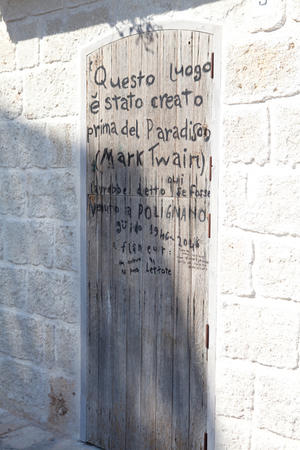 Questo luogo
è stato creato
prima del Paradiso
(Mark Twain)
qui
l'avrebbe detto se fosse
venuto a POLIGNANO
guido
il flâneur
lettore